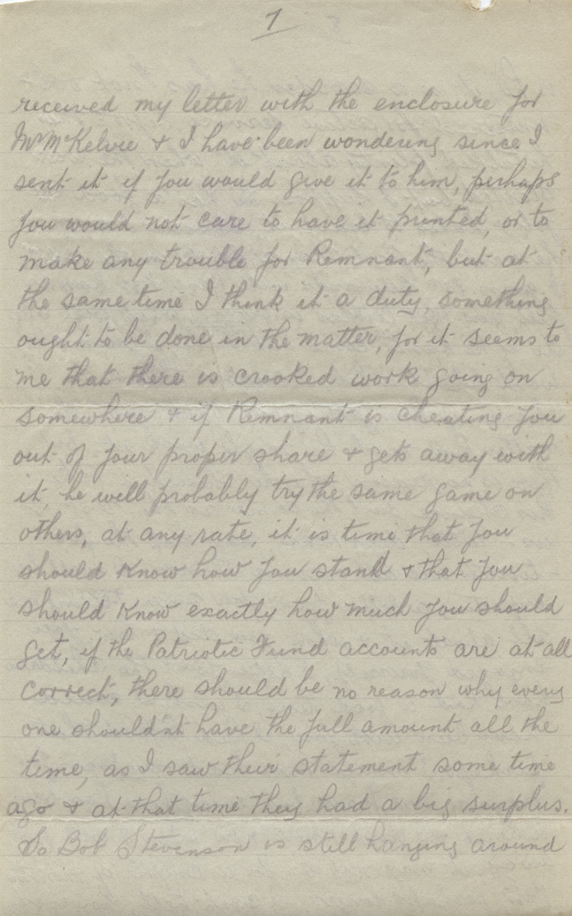 7
received my letter with the enclosure for
Mr McKelvie & I have been wondering since I
sent it if you would give it to him, perhaps
you would not care to have it printed, or to
make any trouble for Remnant, but at
the same time I think it a duty, something
ought to be done in the matter, for it seems to
me that there is crooked work going on
somewhere & if Remnant is cheating you
out of your proper share & gets away with
it, he will probably try the same game on
others, at any rate, it is time that you
should know how you stand & that you
should know exactly how much you should
get, if the Patriotic Fund accounts are at all
correct, there should be no reason why every
one shouldn't have the full amount all the
time, as I saw their statement some time
ago & at that time they had a big surplus.
So Bob Stevenson is still hanging around